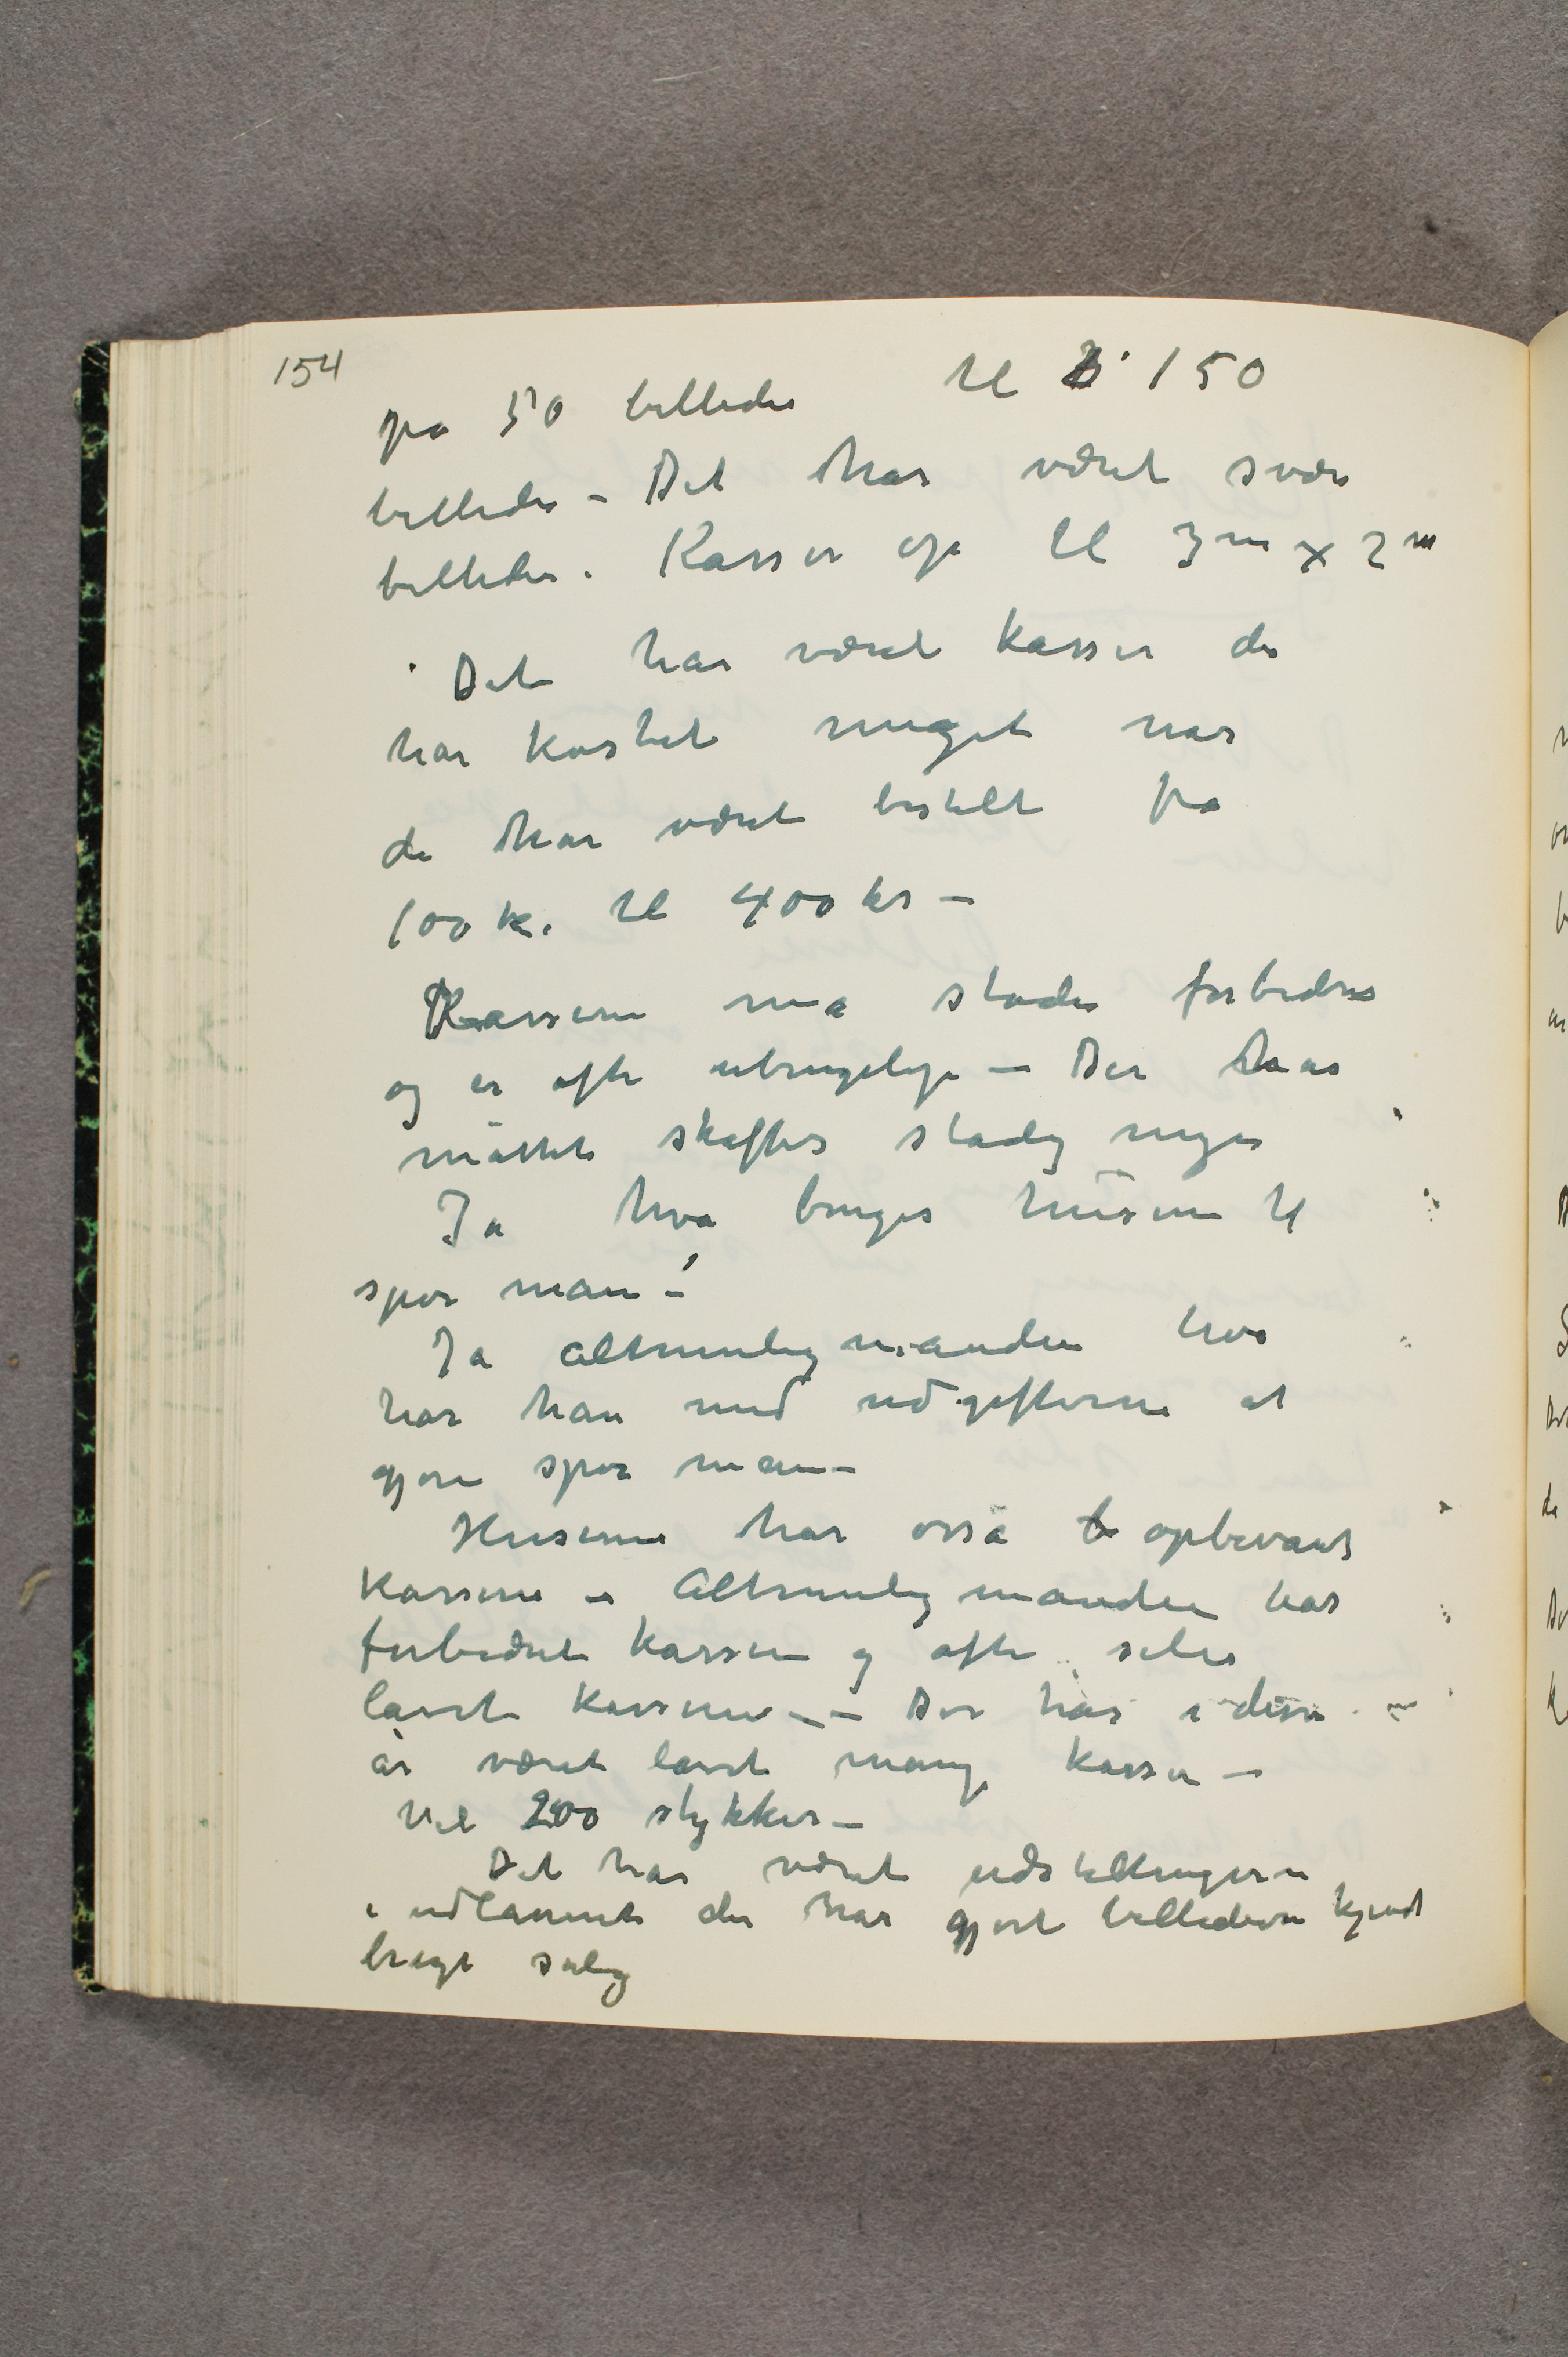 154
på 50 billeder til 150
billeder – Det har været svære
billeder. Kasser op til 3m x 2m
Det har været kasser der
har kostet meget når
de har været bestilt fra
100 kr. til 400 kr –
Kasserne må stadi forbedres
og er ofte ubrugelige – Der har
måttet skaffes stadig nye
Ja hva bruges husene til
spør man –
Ja altmuligmanden hva
har han med udgifterne at
gjøre spør man –
Husene har osså opbevart
kasserne – Altmuligmanden har
forbedret kassene og ofte selv
lavet kassene – – Der har i disse
år været lavet mange kasser –
Vel 200 stykker –
Det har været udstillingerne
i udlannet der har gjort billederne kjendt
bragt salg